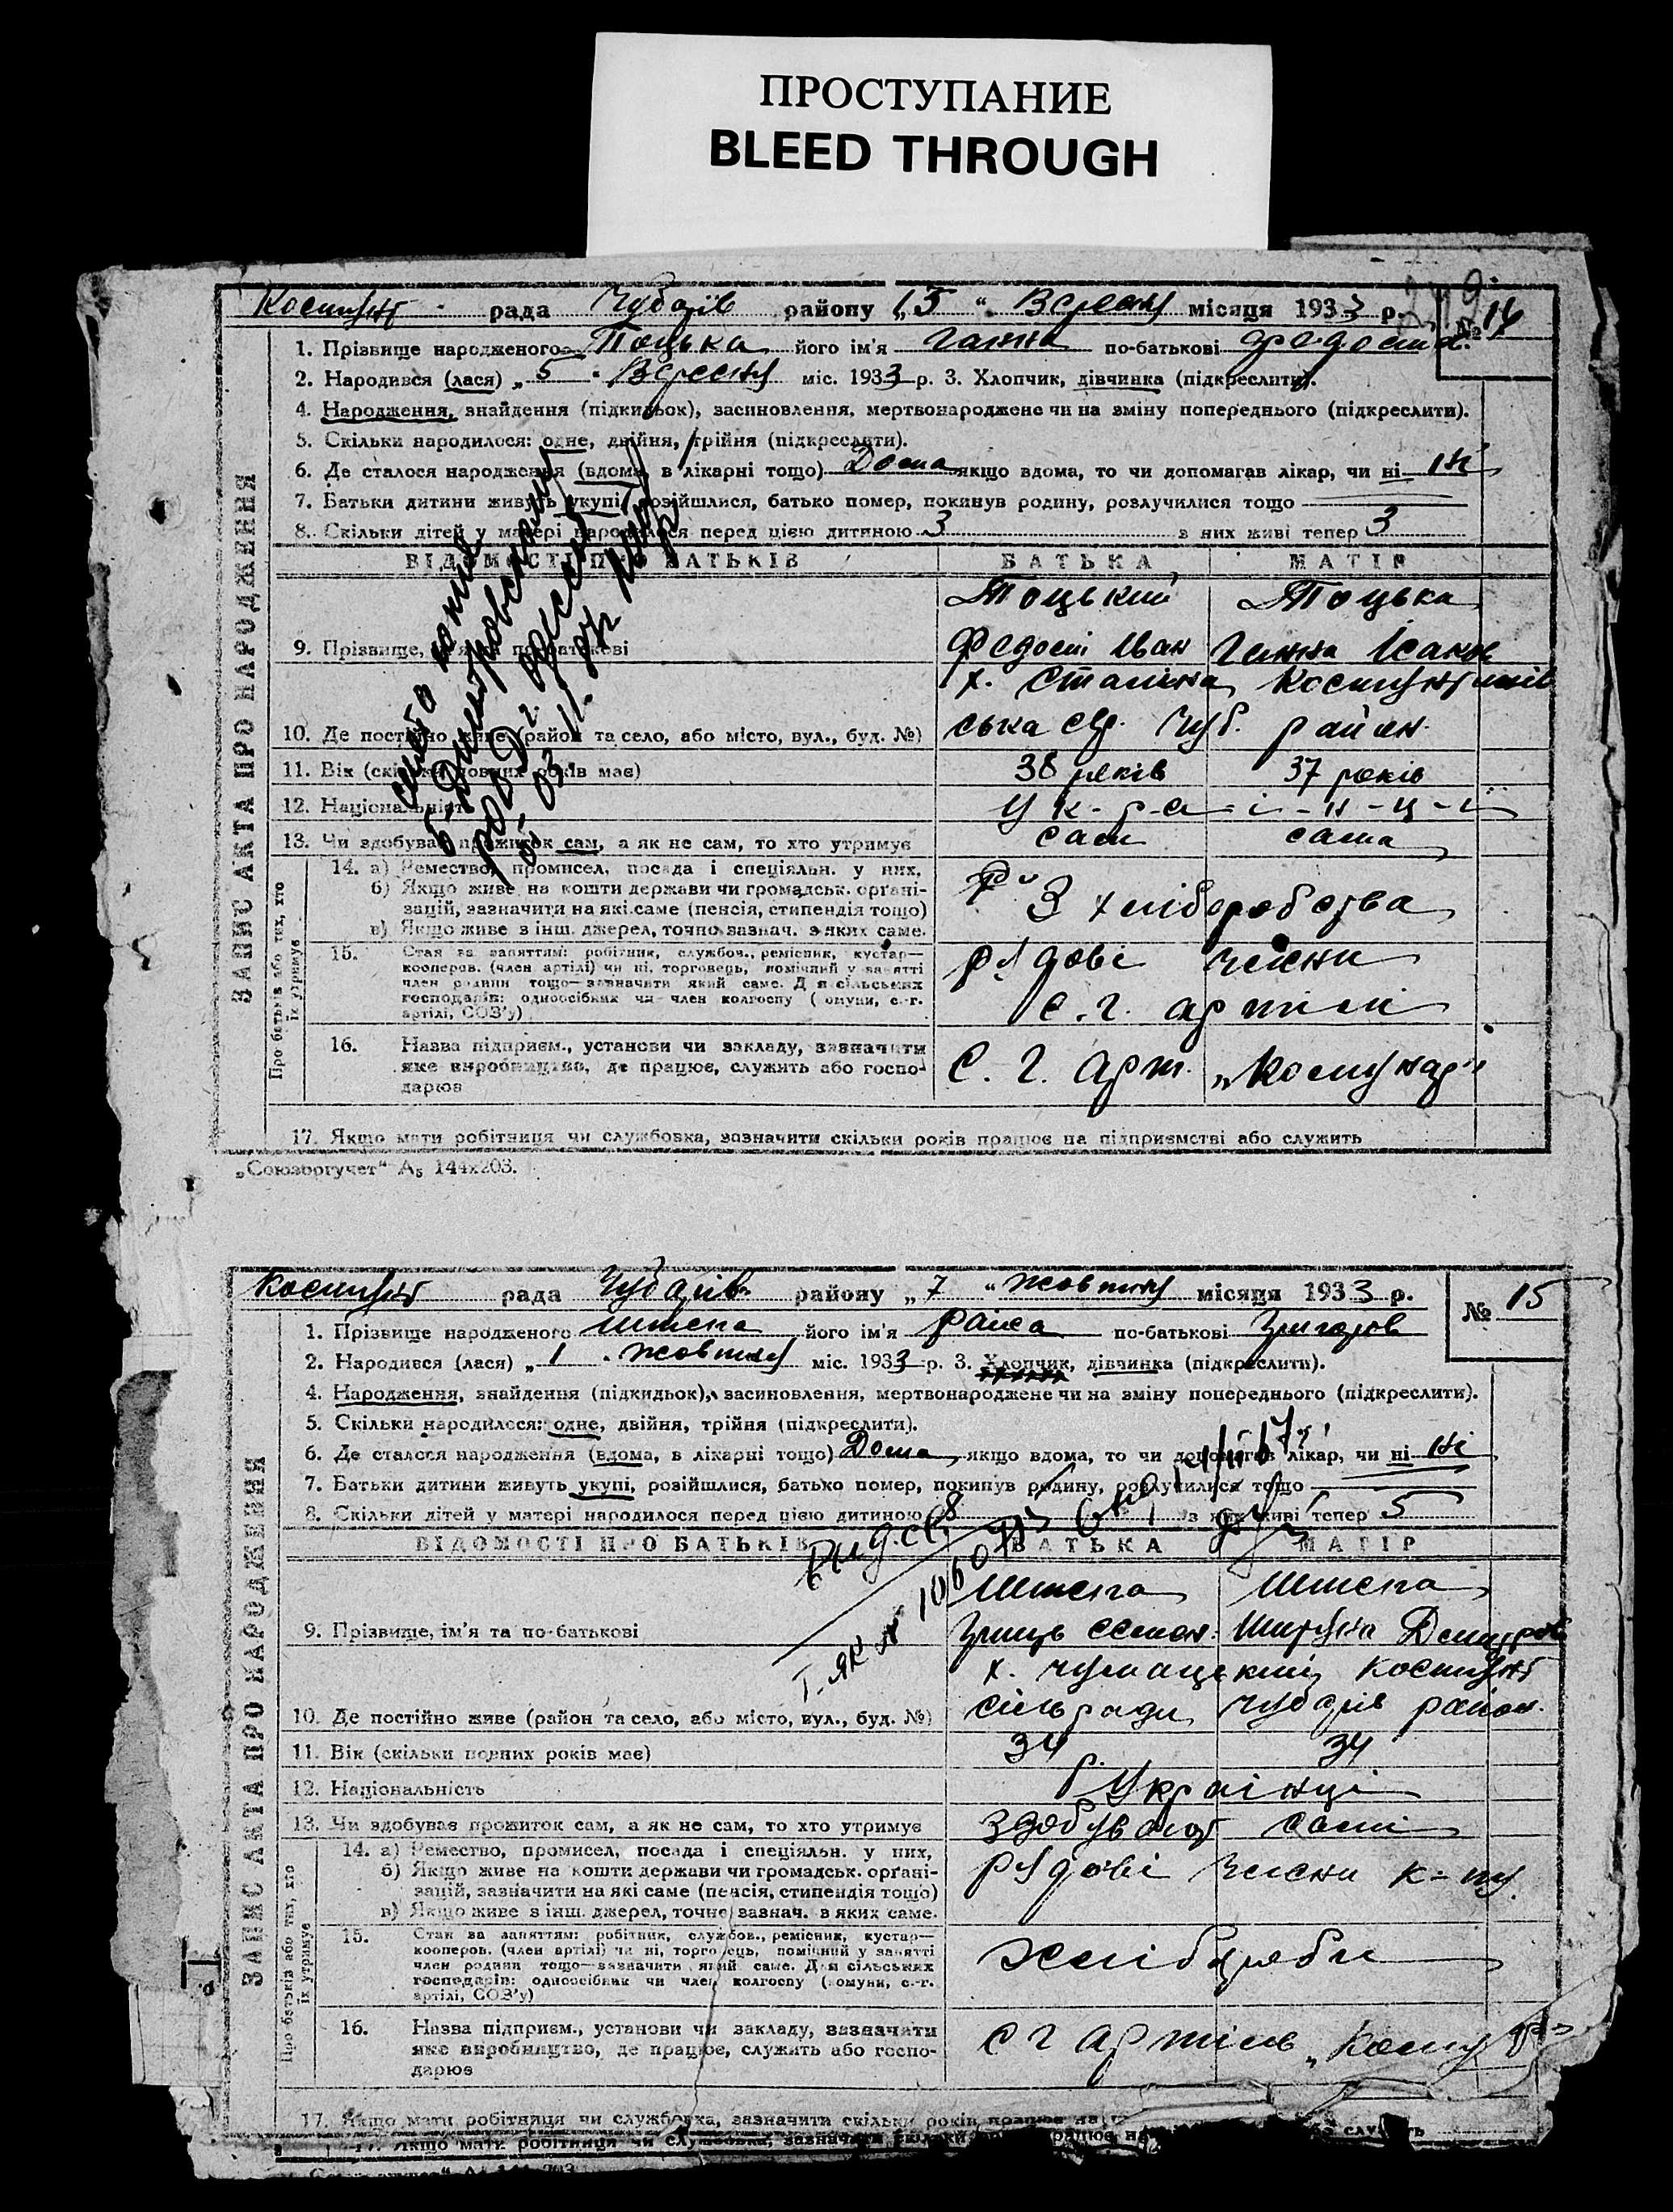 ПРОСТУПАНИЕ
BLEED THROUGH
рада Чубарів району „15“ Вересня місяця 1933 р.
№ 14
1. Прізвище народженого Тоцька його ім'я Ганна по-батькові Федосій.
2. Народився (лася) „5“ Вересня міс. 1933 р. 3. Хлопчик, дівчинка (підкреслити).
4. Народження, знайдення (підкидьок), засиновлення, мертвонароджене чи на зміну попереднього (підкреслити).
5. Скільки народилося: одне, двійня, трійня (підкреслити).
6. Де сталося народження (вдома, в лікарні тощо) Дома якщо вдома, то чи допомагав лікар, чи ні Ні
7. Батьки дитини живуть укупі, розійшлися, батько помер, покинув родину, розлучилися тощо
8. Скільки дітей у матері народилося перед цією дитиною 3 з них живі тепер 3
ЗАПИС АКТА ПРО НАРОДЖЕННЯ
ВІДОМОСТІ ПРО БАТЬКІВ БАТЬКА МАТІР
Тоцький Тоцька
9. Прізвище, ім'я та по-батькові Федосій Іван Ганна Ісаков
х. Сталіна
10. Де постійно живе (район та село, або місто, вул., буд. №) ська с/р. Чуб. район.
11. Вік (скільки повних років має) 38 років 37 років
12. Національність у к-р-а-ї-н-ц-і
13. Чи здобуває прожиток сам, а як не сам, то хто утримує сам сама
Про батьків або тих, хто їх утримує
14. а) Ремество, промисел, посада і спеціяльн. у них,
б) Якщо живе на кошти держави чи громадськ. організацій, зазначити на які саме (пенсія, стипендія тощо) З хліборобства
в) Якщо живе з інш. джерел, точно зазнач. з яких саме.
15. Стан за заняттям: робітник, службов., ремісник, кустар—
кооперов. (член артілі) чи ні, торговець, помічний у занятті рядові члени
член родини тощо—зазначити який саме. Для сільських
господарів: одноосібник чи член колгоспу (комуни, с.-г. с.г. артілі
артілі, СОЗ'у)
16. Назва підприєм., установи чи закладу, зазначити
яке виробництво, де працює, служить або господарює С. Г. Арт. „Комунар“
17. Якщо мати робітниця чи службовка, зазначити скільки років працює на підприємстві або служить
„Союзоргучет“ А₅ 144х203.
рада Чубарів району „7“ жовтня місяця 1933 р.
№ 15
1. Прізвище народженого його ім'я Раїса по-батькові Григоров
2. Народився (лася) „1“ жовтня міс. 1933 р. 3. Хлопчик, дівчинка (підкреслити).
4. Народження, знайдення (підкидьок), засиновлення, мертвонароджене чи на зміну попереднього (підкреслити).
5. Скільки народилося: одне, двійня, трійня (підкреслити).
6. Де сталося народження (вдома, в лікарні тощо) Дома якщо вдома, то чи допомагав лікар, чи ні Ні
7. Батьки дитини живуть укупі, розійшлися, батько помер, покинув родину, розлучилися тощо
8. Скільки дітей у матері народилося перед цією дитиною 8 з них живі тепер 5
ЗАПИС АКТА ПРО НАРОДЖЕННЯ
ВІДОМОСТІ ПРО БАТЬКІВ БАТЬКА МАТІР
9. Прізвище, ім'я та по-батькові Гриць Семен.
10. Де постійно живе (район та село, або місто, вул., буд. №) сільради Чубарів район.
11. Вік (скільки повних років має) 34 34
12. Національність Українці
13. Чи здобуває прожиток сам, а як не сам, то хто утримує здобувают самі
Про батьків або тих, хто їх утримує
14. а) Ремество, промисел, посада і спеціяльн. у них,
б) Якщо живе на кошти держави чи громадськ. організацій, зазначити на які саме (пенсія, стипендія тощо) рядові члени
в) Якщо живе з інш. джерел, точно зазнач. в яких саме.
15. Стан за заняттям: робітник, службов., ремісник, кустар—
кооперов. (член артілі) чи ні, торговець, помічний у занятті хлібороби
член родини тощо—зазначити який саме. Для сільських
господарів: одноосібник чи член колгоспу (комуни, с.-г.
артілі, СОЗ'у)
16. Назва підприєм., установи чи закладу, зазначити
яке виробництво, де працює, служить або господарює с г артіль
17. Якщо мати робітниця чи службовка, зазначити скільки років працює на
17. Якщо мати робітниця чи службовка, зазначити скільки